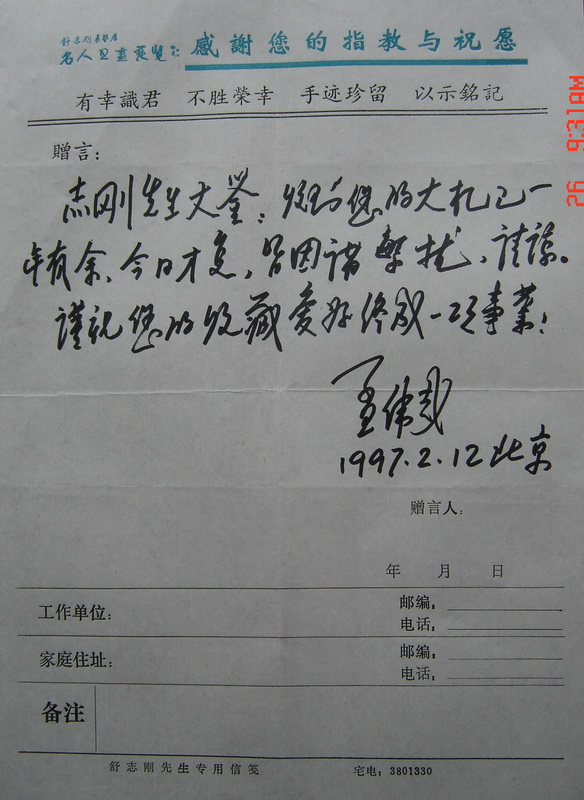 舒志刚
名人书画展览
感謝您的指教与祝愿
有幸識君 不胜榮幸 手迹珍留 以示銘記
赠言：
志刚先生大鉴：您的大札已一
年有余、今日才复，皆因诸繁扰、请谅。
谨祝您的收藏爱好终成一项事业！
1997.2.12北京
赠言人：
年 月 日
工作单位：
邮编：
电话：
家庭住址：
邮编：
电话：
备注
舒志刚先生专用信笺 宅电：3801330